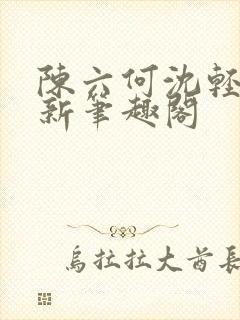 陳六何沈輕
新筆趣閣
烏拉拉大酋長